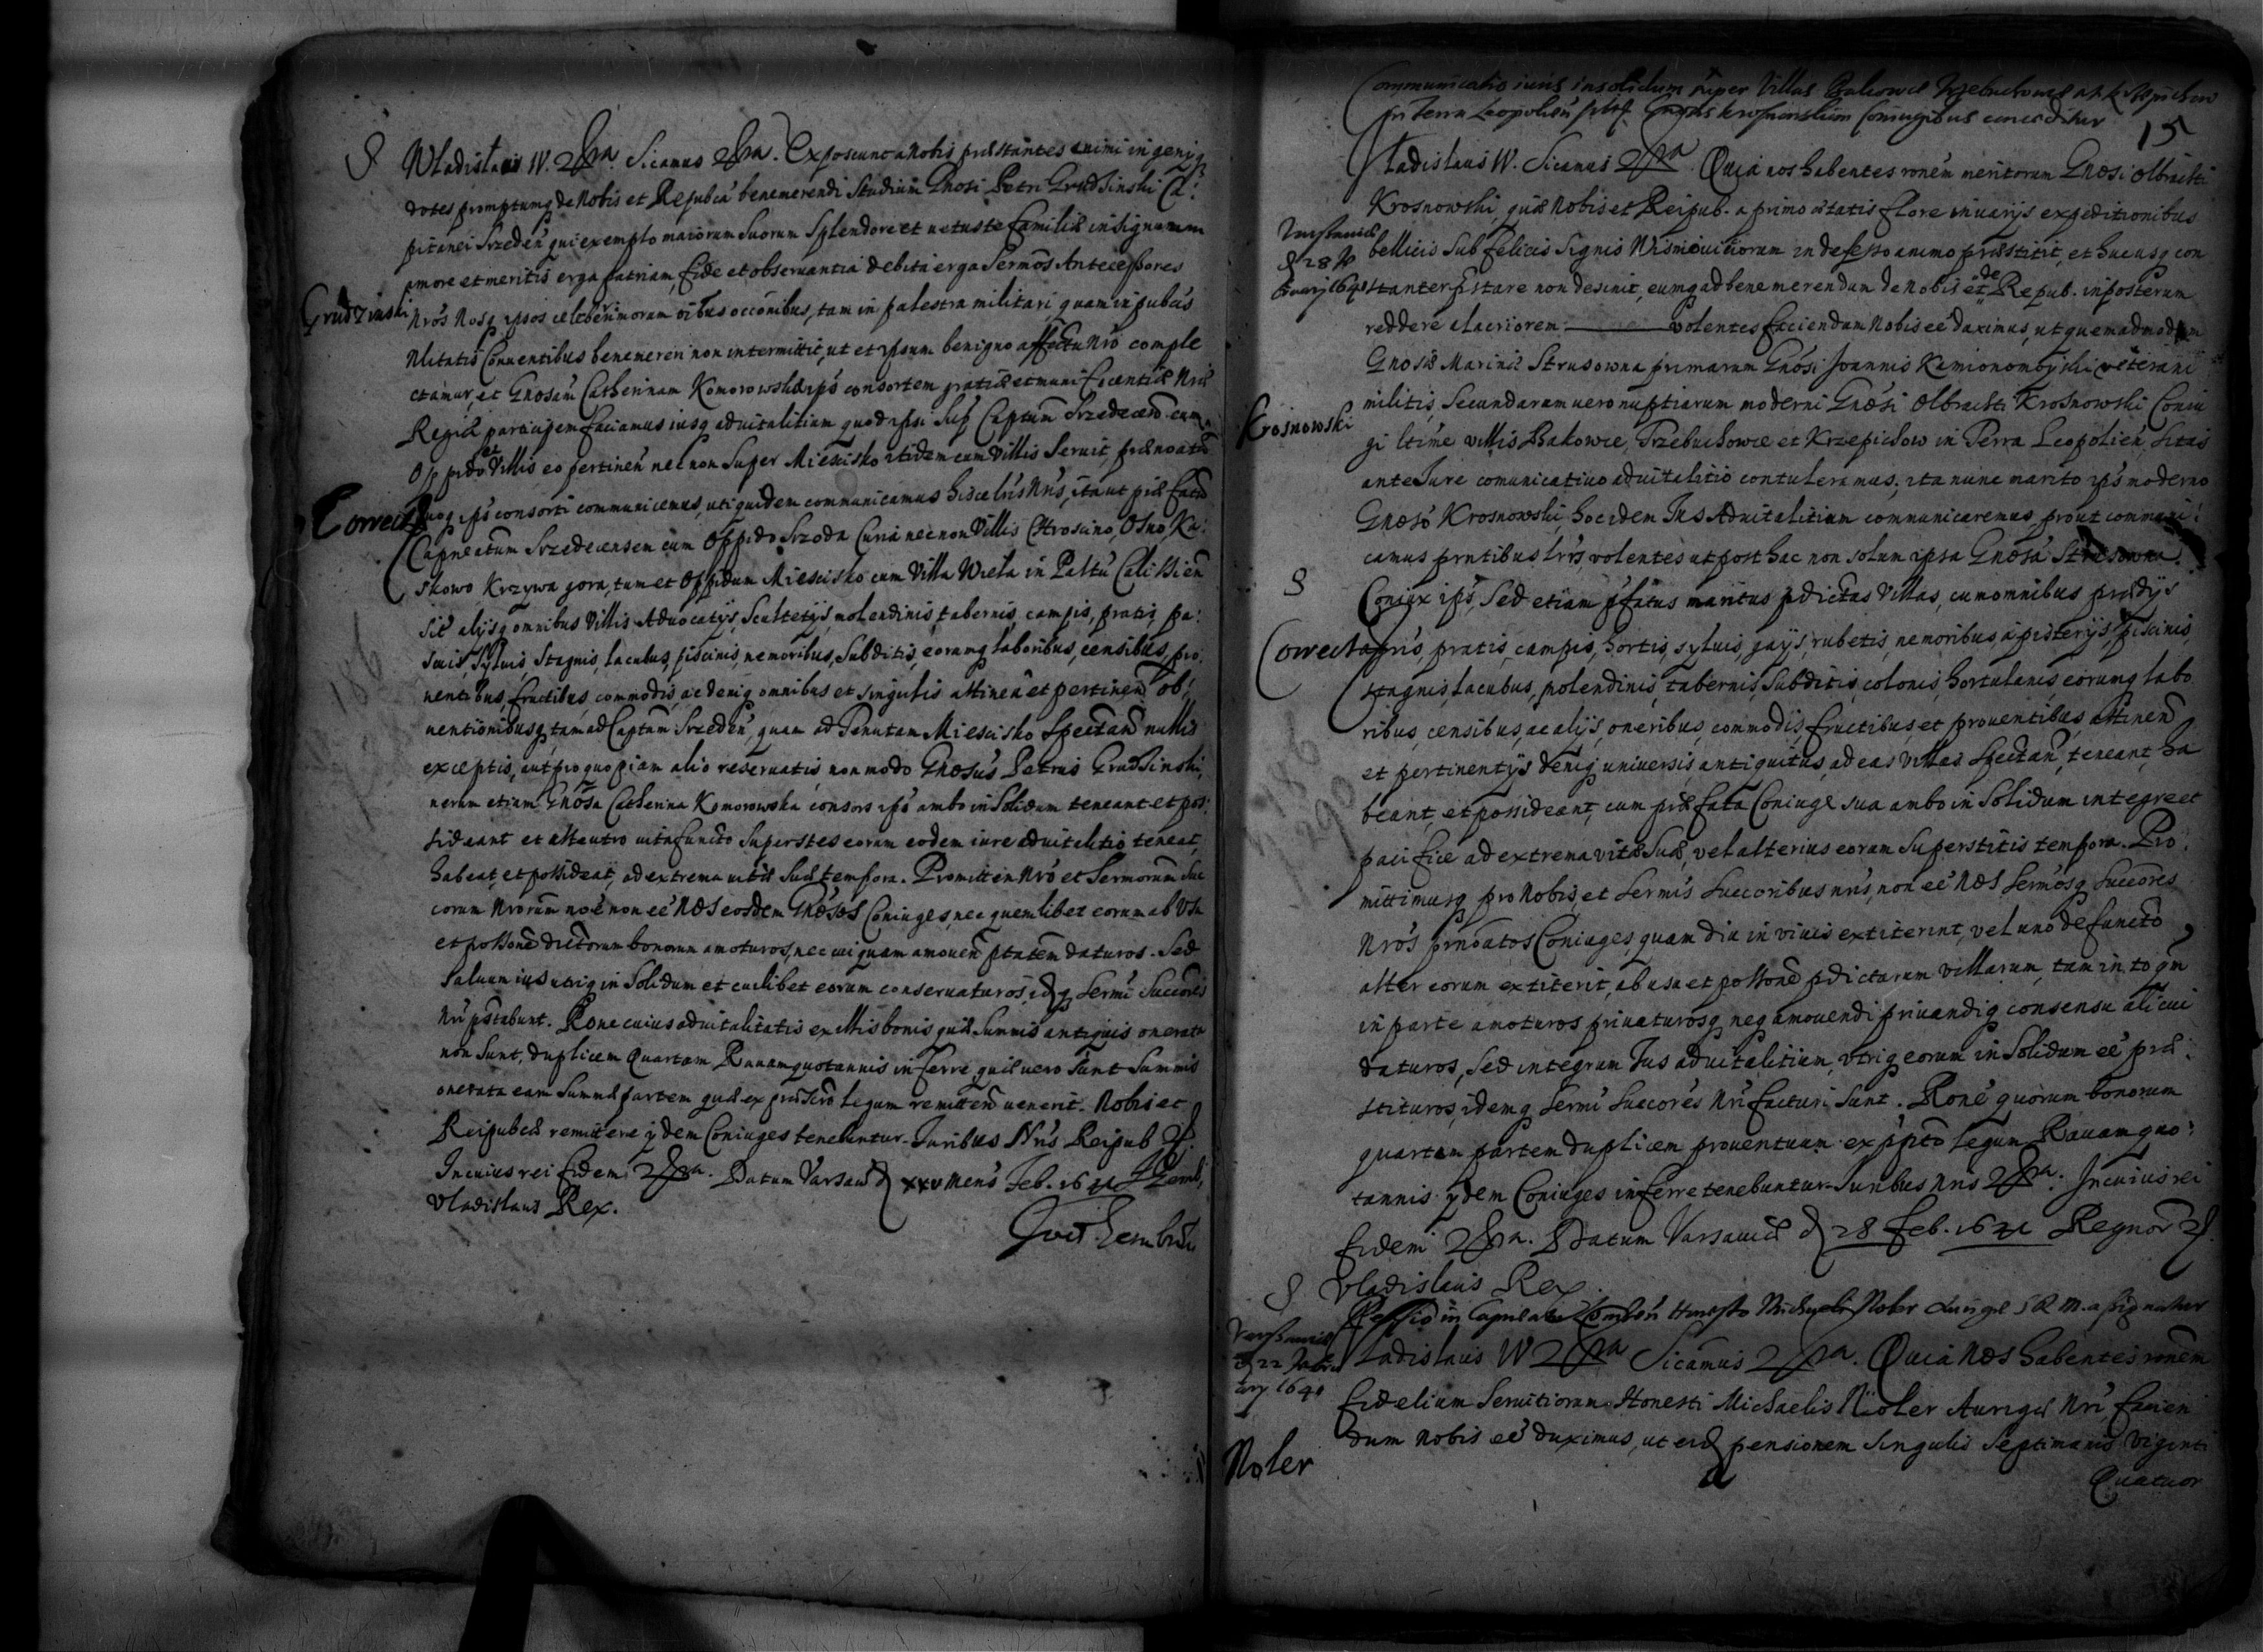 Wladislaus IV. &ra. Sicamus &ra. Exposcunt a Nobis præstantes animi ingenijq
dotes promptumq de Nobis et Repubca benemerendi Studium Gnosi Petri Grudzinski Ca:
pitanei Srzeden qui exemplo maiorum Suorum Splendore et uetustæ familiæ insignum
amore et meritis erga patriam, fide et obseruantia debita erga Sermos Antecessores
Grudzinski
Nros Nosq ipsos celeberrimorum oibus occonibus, tam in palestra militari quam in publicis
Utilitatis Conuentibus benemereri non intermittit, ut et ipsum benigno affectu Nro comple
ctamur, et Gnosam Catherinam Komorowska ips consortem gratiæ et munificentiæ Nræ
Regiæ participem faciamus iusq aduitalitium quod ipsi Sup Captum Srzedecen cum
Oppido et Villis eo pertinen nec non Super Miescisko itidem cum Villis Seruit, prænoatæ
Correcta
suoq ips consorti communicemus, uti quidem communicamus hisce lris Nris, ita ut piæ fatæ
Capneatum Srzedecensem cum Oppido Srzoda Curia nec non Villis Chrosino, Osno, Ka:
skowo Krzywa gora, tum et Oppidum Miescisko cum Villa Wiela in Paltu Calissien
Sit alijsq omnibus Villis Aduocatijs, Scultetijs, molendinis, tabernis, campis, pratis, pa:
scuis, Syluis, Stagnis, laculus, piscinis, nemoribus, Subditis, eorumq laboribus, censibus, pro:
uentibus, fructibus, commodis, ac deniq omnibus et singulis attinen et pertinen ob:
uentionibusq, tam ad Captum Srzeden, quam ad Tenutam Miescisko Spectan nullis
exceptis, aut pro quopiam alio reseruatis, non modo Gnosus Petrus Grudzinski,
uerum etiam Gnosa Catherina Komorowska consors ips ambo in Solidum teneant et pos:
sideant et alteutro uita functo Superstes eorum eodem iure aduitalitio teneat,
habeat, et possideat, ad extrema uitæ Suæ tempora. Promitten Nro et Sermorum Suc
corum Nrorum noe non ee NOS eosdem Gnosos Coniuges, nec quemlibet eorum ab Vsu
et possone dictorum bonorum amoturos, nec cuiquam amouen ptatem daturos. Sed
Saluum ius utriq in Solidum et cuilibet eorum conseruaturos, idq Sermi Succores
Nri pstabunt. Rone cuius aduitalitatis ex illis bonis quæ Summis antiquis onerata
non sunt, duplicem Quartam Rauam quotannis inferre, quæ uero Sunt Summis
onerata eam Summæ partem quæ ex præscro legum remitten uenerit. Nobis et
Reipubcæ remittere ijdem Coniuges tenebuntur. Juribus Nris Reipub &.
In cuius rei fidem &ra. Datum Varsauiæ d xxv mens Feb. 1641
Vladislaus Rex.
15
Communicatio iuris in solidum super Villas Bakowce Trzebuchowce et Krzepichow
in Terra Leopolien Krosnowskim Coniugibus conceditur
Vladislaus IV. Sicamus &ra. Quia nos habentes ronem meritorum Gnosi Olbrachti
Krosnowski, quæ Nobis et Reipub. a primo ætatis flore in uarijs expeditionibus
Varsauiæ
d 28 Fe
bruarij 1641
bellicis Sub felicis Signis Wisniouitiorum indefesso animo præstitit, et hucusq con
stanter pstare non desinit, eumq ad benemerendum de Nobis et de Repub. in posterum
reddere alacriorem volentes faciendum Nobis ee duximus, ut quemadmodum
Gnosæ Marinæ Strusowna primarum Gnosi Joannis Kamionombijski ueterani
Krosnowski
militis, Secundarum uero nuptiarum moderni Gnosi Olbrachti Krosnowski Coniu
gi ltime villis Bakowce, Trzebuchowce et Krzepichow in Terra Leopolien sitas
ante Jure comunicatiuo aduitalitio contuleramus; ita nunc marito ips moderno
Gnoso Krosnowski hoc idem Jus Aduitalitium communicaremus, prout communi:
camus pntibus lris, volentes ut post hac non solum ipsa Gnosa Strusowna
Coniux ips, Sed etiam pfatus maritus pdictas Villas, cum omnibus prædijs
Correcta
agris, pratis, campis, hortis, syluis, gaijs, rubetis, nemoribus, apisterijs, piscinis,
stagnis, lacubus, molendinis, tabernis, Subditis, colonis, hortulanis, eorumq labo
ribus, censibus, ac alijs, oneribus, commodis, fructibus et prouentibus, attinen
et pertinentijs deniq uniuersis, antiquitus, ad eas Villas Spectan, teneant, ha
beant, et possideant, cum præfata Coniuge sua ambo in Solidum integre et
pacifice ad extrema vitæ Suæ, vel alterius eorum Superstitis tempora. Pro:
mittimusq pro Nobis, et Sermis Succoribus nris, non ee NOS Sermosq Succores
Nros prnoatos Coniuges, quam diu in viuis extiterint, vel uno defuncto
alter eorum extiterit, ab usu et possone pdictarum villarum, tam in to qm
in parte amoturos priuaturosq neq amouendi priuandiq consensu alicui
daturos, Sed integrum Jus aduitalitium, vtriq eorum in Solidum ee præ:
stituros, idemq Sermi Succores Nri facturi sunt. Rone quorum bonorum
quartam partem duplicem prouentuum ex ppto legum Rauam quo:
tannis ijdem Coniuges inferre tenebuntur. Juribus Nris &ra. In cuius rei
fidem &ra. Datum Varsauiæ d 28 Feb. 1641 Regnor &.
Vladislaus Rex.
Varsauiæ
d 22 Febru
arij 1641
Pensio in Honesto Michaeli Noler Aurigæ S R M. assignatur
Vladislaus IV &ra Sicamus &ra. Quia NOS habentes ronem
fidelium Seruitiorum Honesti Michaelis Noler Aurigæ Nri, facien
Noler
dum nobis ee duximus, ut eid pensionem singulis septimanis viginti
Quatuor